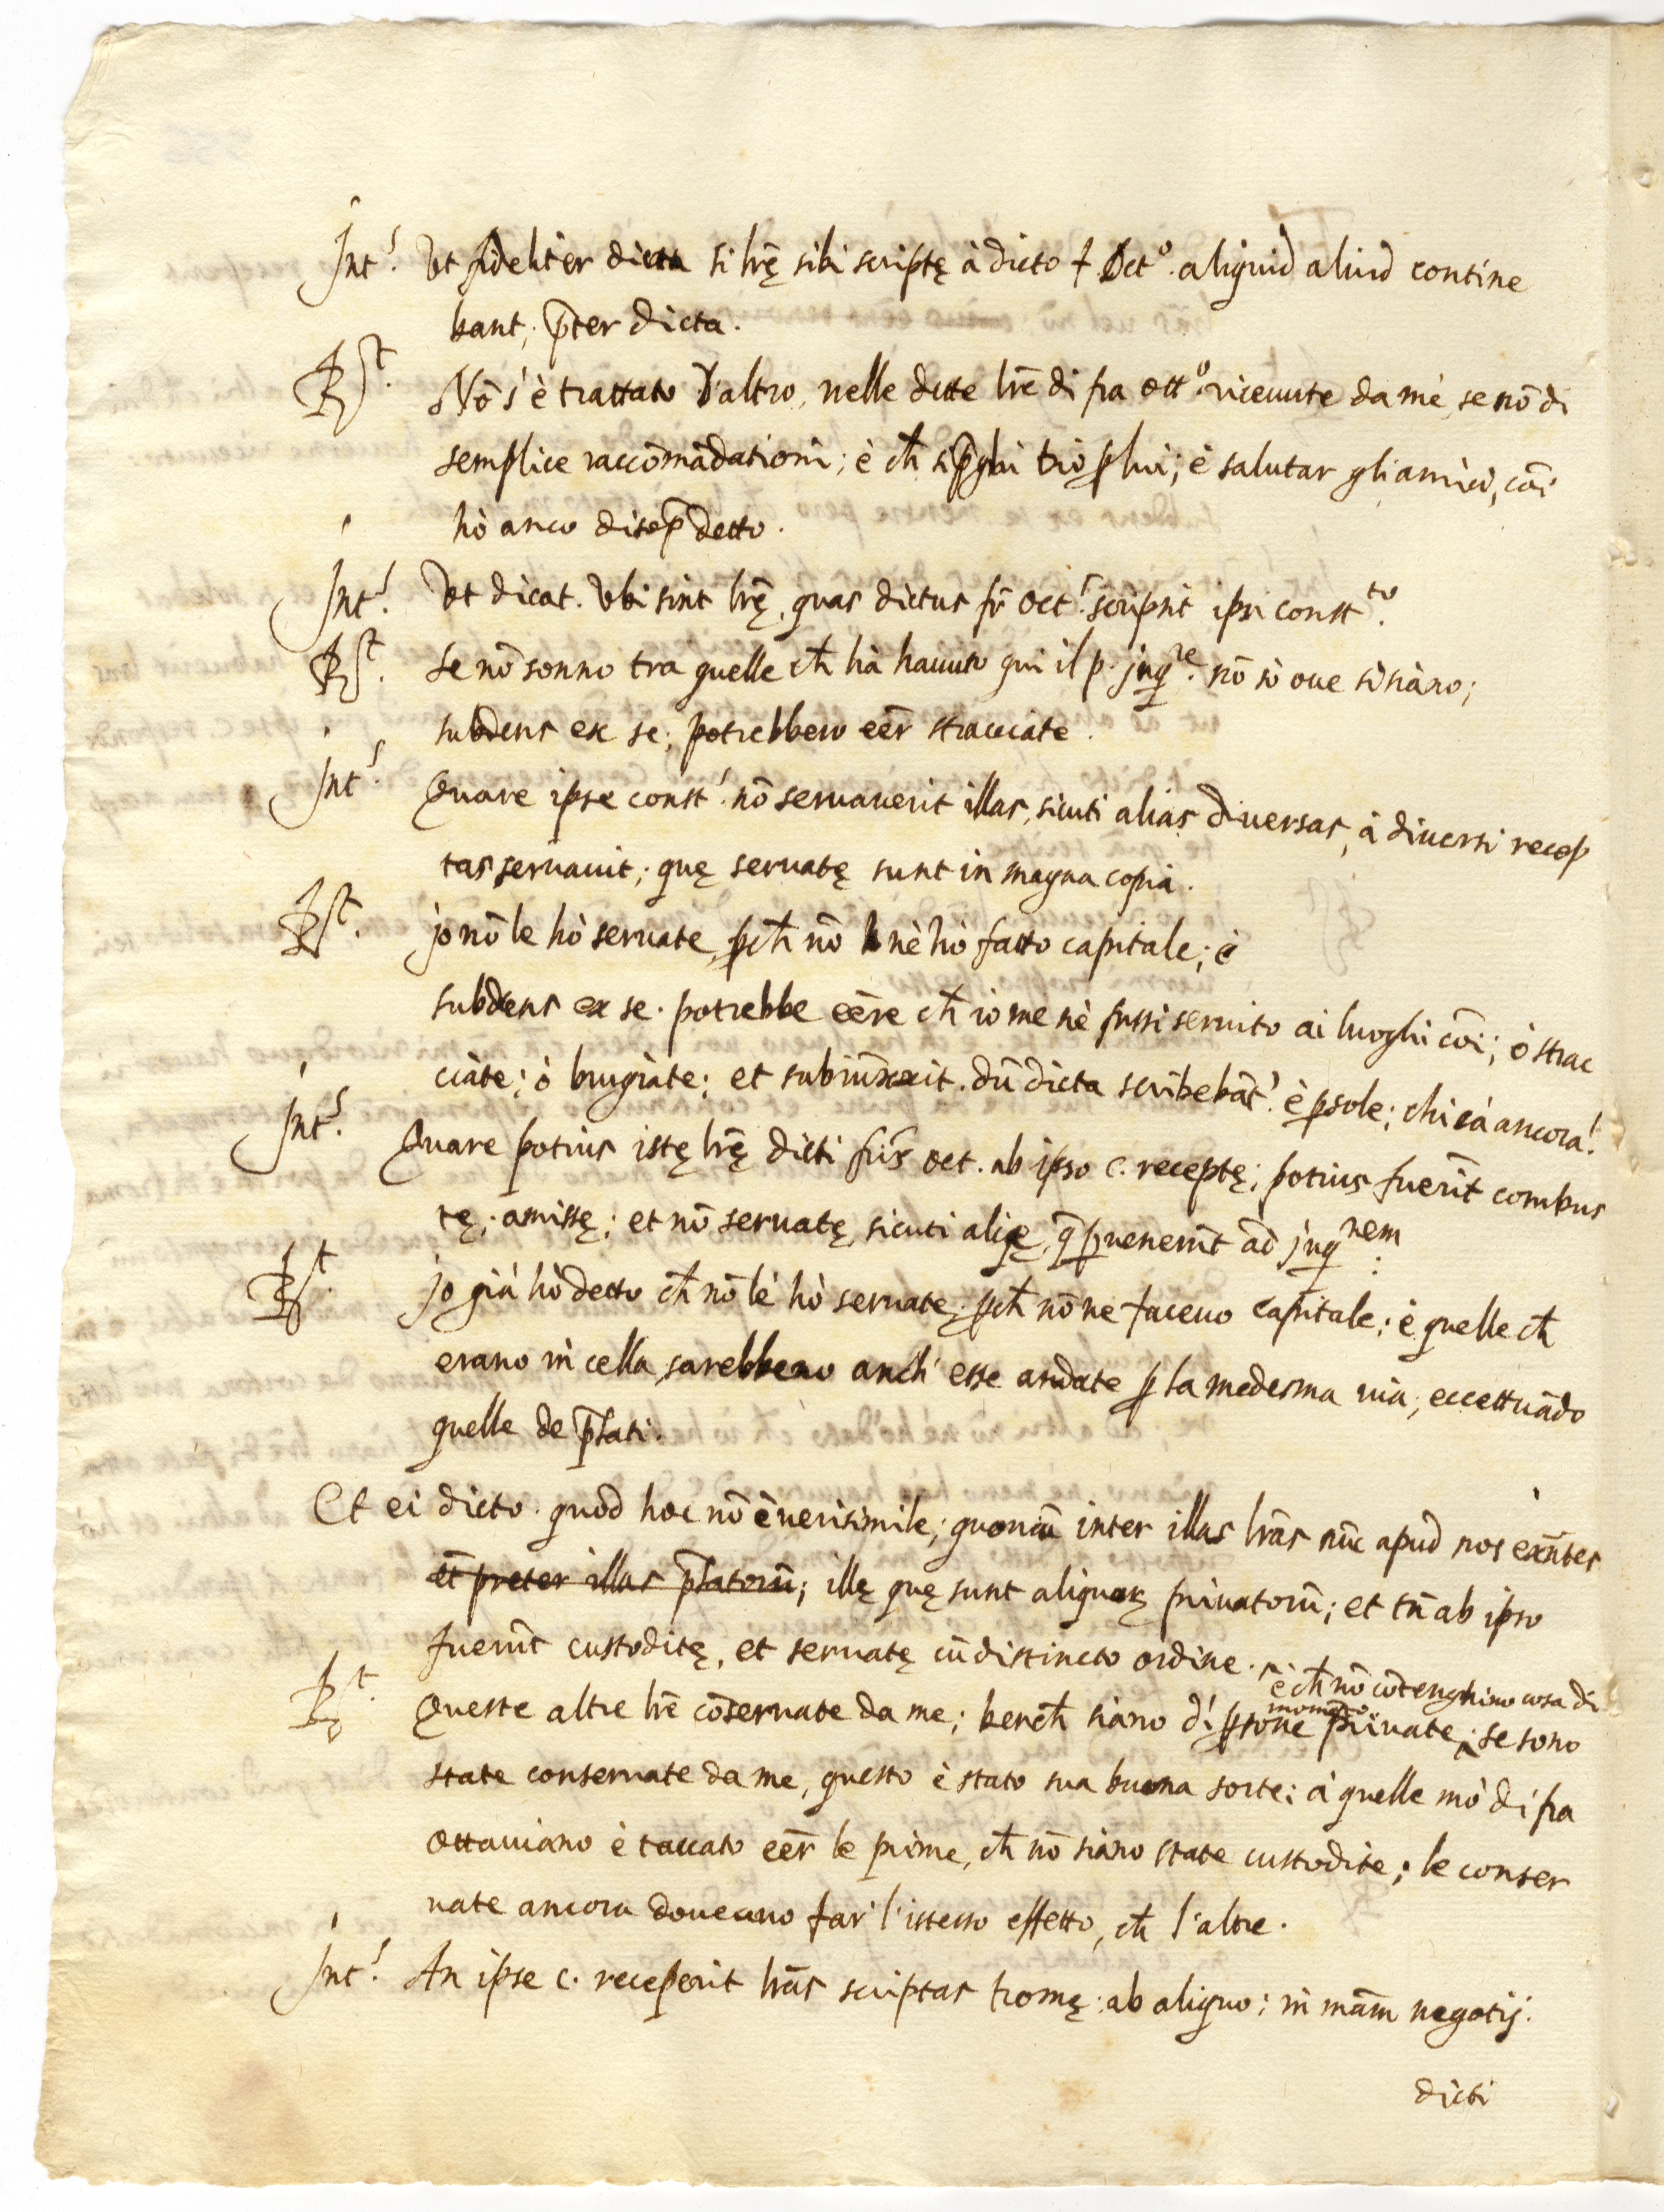 Int.s Vt fideliter dicta si lrę sibi scriptę à dicto f Oct.o aliquid aliud contine
bant; p̄ter dicta.
Rst. Nō s'è trattato d'altro, nelle dette lrē di fra ott.o riceuute da mè, se nō di
semplice raccōmādationi; è ch̄ si p̄ghi Dio p lui; è salutar gli amici, cōi
hò anco disop̄ detto.
Int.s Vt dicat. Vbi sint lrę, quas dictus fr̄ Oct.s scripsit ipsi constto.
Rst. Se nō sonno tra quelle ch̄ hà hauuto qui il p. jnqre. nō sò oue si siàno;
subdens ex se; potrebbero eēr stracciate.
Int.s Quare ipse const.s nō seruauerit illas, sicuti alias diuersas, à diuersi recep
tas seruauit; quę seruatę sunt in magna copia.
Rst. jo nō le hò seruate, pch̄ nō nè hò fatto capitale; è
subdens ex se. potrebbe eēre ch̄ io me nè fussi seruito ai luoghi cōi; ò strac
ciàte; ò brugiàte; et subiūxit. dū dicta scribebāt.r è psole; chi sà ancora!
Int.s Quare potius istę lrę dicti fris Oct. ab ipso c. receptę; potius fuerīt combus
tę; amissę; et nō seruatę, sicuti alię, q̄ puenerūt ad jnqnem.
Rst. jo già hò detto ch̄ nō lè hò seruate, pch̄ nō ne faceuo capitale; è quelle ch̄
erano in cella, sarebbeno anch' esse andate p la medesma uia; eccettuādo
quelle de p̄lati.
Et ei dicto. quod hoc nō ē uerisimile; quoniā inter illas lrās nūc apud nos exn̄tes
et̄ preter illas p̄latorū; illę quę sunt aliquorū priuatorū; et tn̄ ab ipso
fuerūt custoditę, et seruatę cū distincto ordine.
è ch̄ nō cōtenghino cosa di
momēto
Rst. Queste altre lrē cōseruate da me; bench̄ siàno di psone priuate; se sono
state conseruate da me, questo è stato sua buona sorte; à quelle mò di fra
Ottauiano è toccato eēr le prime, ch̄ nō siàno state custodite; le conser
uate ancora doueuano far' l'istesso effetto, ch̄ l'altre.
Int.s An ipse c. receperit lrās scriptas Romę; ab aliquo; in mām negotij.
dicti